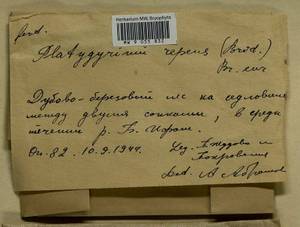 Herbarium MW, Bryophyta
MW 9 035 837
Platygyrium repens (Brid.)
Br. eur
Дубово-березовый лес на седловине
между двумя сопками, в средн
течении р. Б.
Оп. 82. 10.9.1944. Leg. и
Покровская
Det. А Абрамов